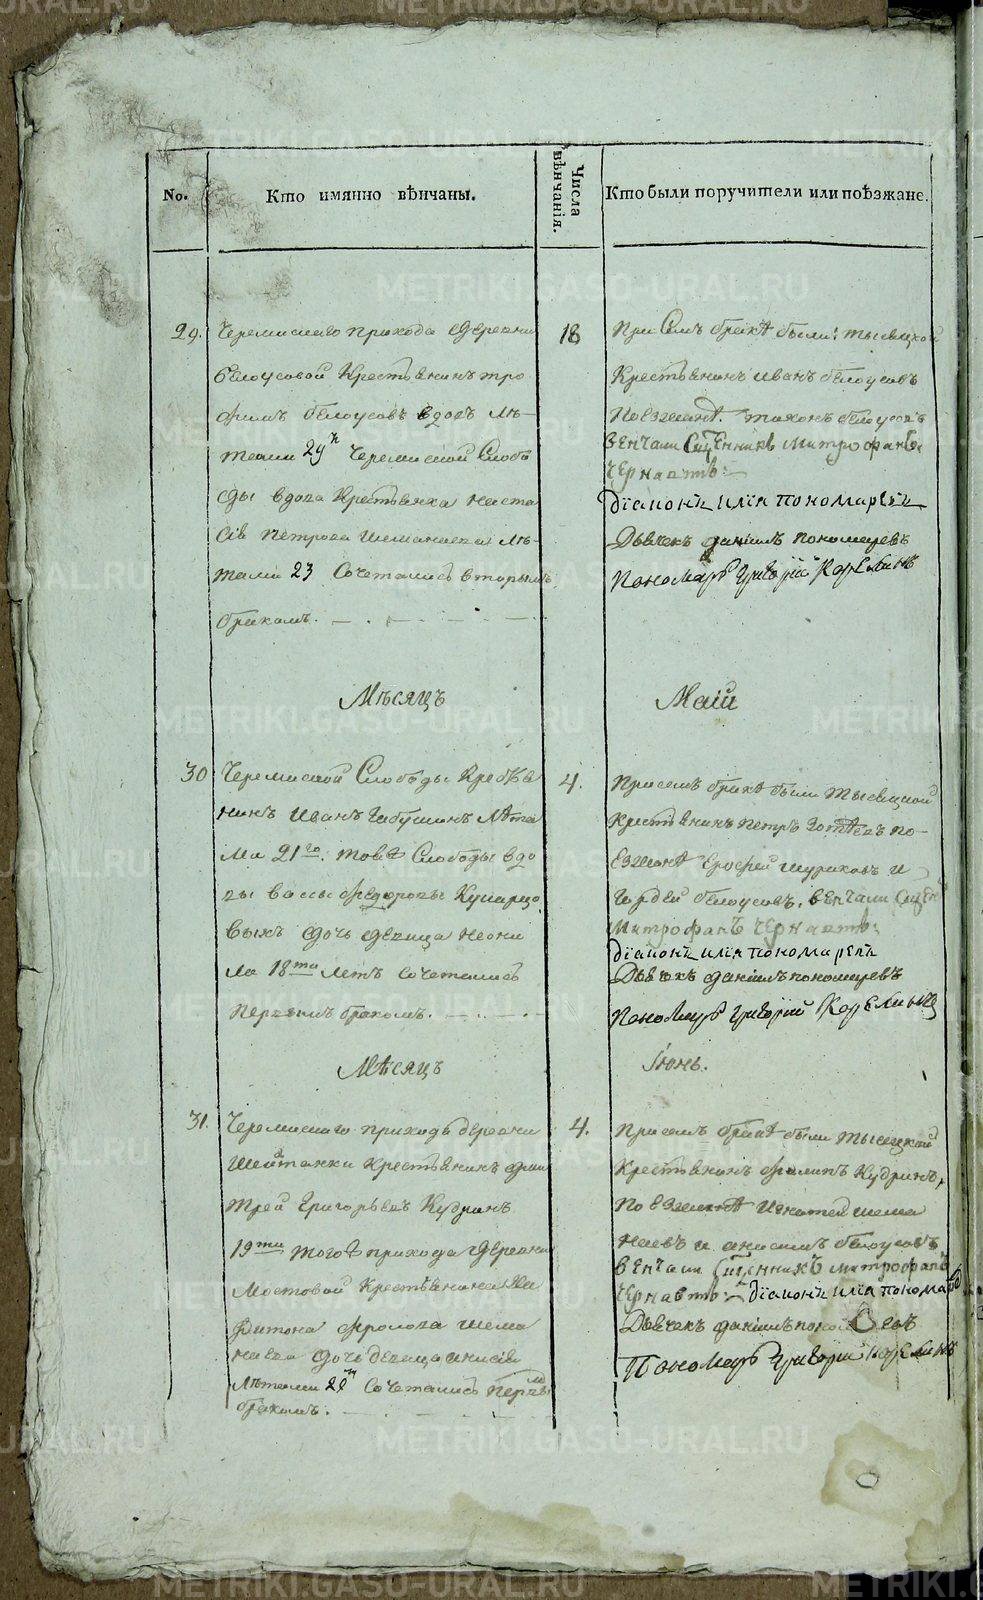 No.
Кто имянно вѣнчаны.
Числа вѣнчанія.
Кто были поручители или поѣзжане.
29.
Черемискаго прихода деревни
белоусовой Крестьянинъ тро
фимъ белоусовъ вдовъ лѣ-
тами 29 Черемиской Слобо
ды вдова Крестьянка наста
сія Петрова Шеманаева лѣ-
тами 23 Сочетались вторымъ
бракомъ.
18
При Семъ бракѣ были: тысяцкой
Крестьянинъ Иванъ белоусовъ
Поезжанѣ. тихонъ белоусовъ
вѣнчали Сщенникъ Митрофанъ
Чернавтъ:
Діаконъ илія пономаревъ
Дьячекъ данилъ пономаревъ
Пономарь григорій Карелинъ
Мѣсяцъ
Маій
30
Черемиской Слободы Крестья
нинъ Иванъ Лѣта
ми 21го. тояѣ Слободы вдо
вы Федоровы
выхъ дочь девица неони
ла 18ти летъ сочетались
первымъ бракомъ.
4.
При семъ бракѣ были тысяцкой
Крестьянинъ Петръ по-
Езжанѣ Ерофей шураковъ и
гордей белоусовъ. вѣнчали Сщен
Митрофанъ Чернавтъ:
Діаконъ илія пономаревъ
Дьячекъ данилъ пономаревъ
Пономарь григорій Карелинъ
Мѣсяцъ
Іюнь.
31.
Черемискаго приходъ деревни
Шайтанки Крестьянинъ дми
трей Григорьевъ Кудринъ
19ти тогоѣ прихода деревни
Мостовой Крестьянина Ха
ритона Фролова шема
наева дочь девица анисія
Лѣтами 20 Сочетались первымъ
бракомъ.
4.
При семъ бракѣ были тысяцкой
Крестьянинъ филипъ Кудринъ,
поезжанѣ Игнатей шема
наевъ и анисимъ белоусовъ
вѣнчали Сщенникъ митрофанъ
Чернавтъ: Діаконъ илія понома
Дьячекъ данилъ
Пономарь григорій Карелинъ
METRIKI.GASO-URAL.RU